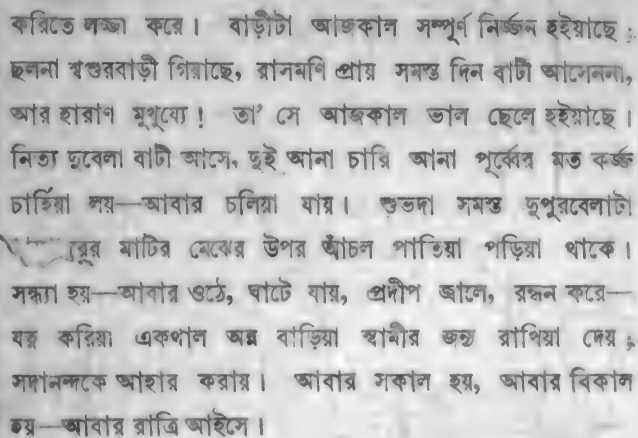 করিতে লজ্জা করে। বাড়ীটা আজকাল সম্পূর্ণ নির্জ্জন হইয়াছে;
ছলনা শ্বশুরবাড়ী গিয়াছে, রাসমণি প্রায় সমস্ত দিন বাটী আসেননা,
আর হারাণ মুখুয্যে! তা' সে আজকাল ভাল ছেলে হইয়াছে।
নিত্য দুবেলা বাটী আসে, দুই আনা চারি আনা পূর্ব্বের মত কর্জ্জ
চাহিয়া লয়—আবার চলিয়া যায়। শুভদা সমস্ত দুপুরবেলাটা
মাটির মেঝের উপর আঁচল পাতিয়া পড়িয়া থাকে।
সন্ধ্যা হয়—আবার ওঠে, ঘাটে যায়, প্রদীপ জ্বালে, রন্ধন করে—
যত্ন করিয়া একথাল অন্ন বাড়িয়া স্বামীর জন্য রাখিয়া দেয়;
সদানন্দকে আহার করায়। আবার সকাল হয়, আবার বিকাল
হয়—আবার রাত্রি আইসে।